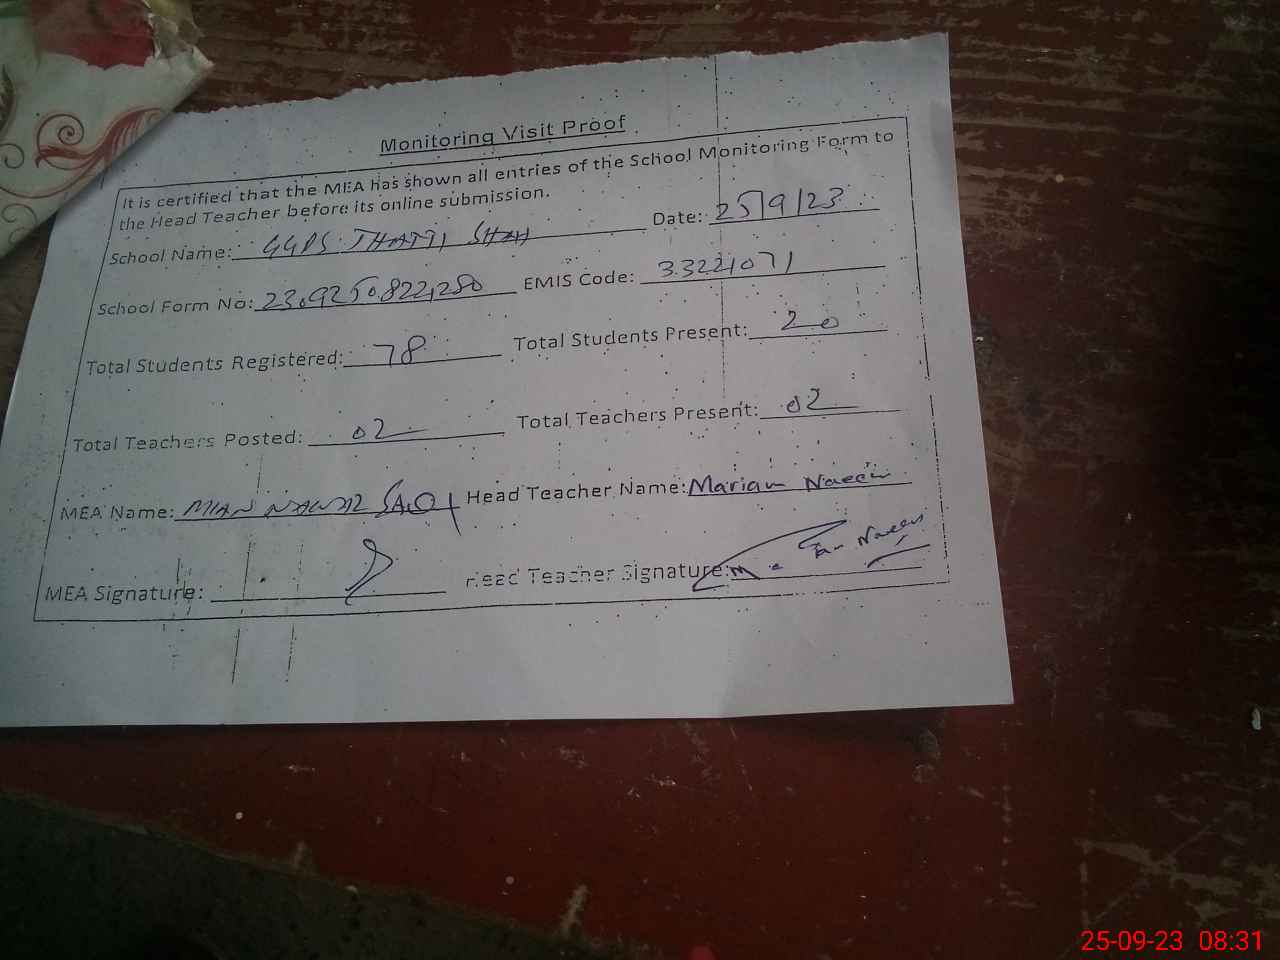 Monitoring Visit Proof
It is certified that the MEA has shown all entries of the School Monitoring Form to
the Head Teacher before its online submission.
School Name: GGPS THATTI SHAH Date: 25/9/23
School Form No: 230925082280 EMIS Code: 33221071
Total Students Registered: 78 Total Students Present: 20
Total Teachers Posted: 02 Total Teachers Present: 02
MEA Name: MIAN Head Teacher Name: Mariam Naeem
MEA Signature: Head Teacher Signature: Naeem
25-09-23 08:31